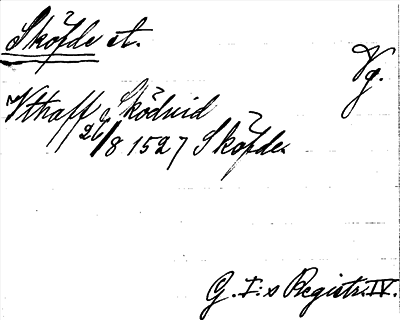 Sköfde st.
Vg.
Vthaff Sködvid
26/8 1527 Sköfde.
G. I:s Registr. IV.